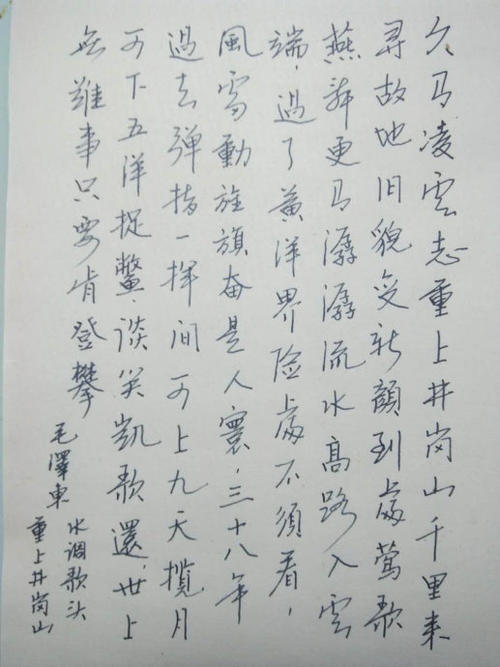 久有凌雲志重上井岗山千里来
尋故地旧貌变新顔到處莺歌
燕舞更有潺潺流水高路入雲
端，過了黄洋界险處不須看，
風雷動旌旗奋是人寰，三十八年
過去弹指一挥间可上九天揽月
可下五洋捉鳖，谈笑凯歌還，世上
無难事只要肯登攀
毛澤東 水调歌头
重上井岗山